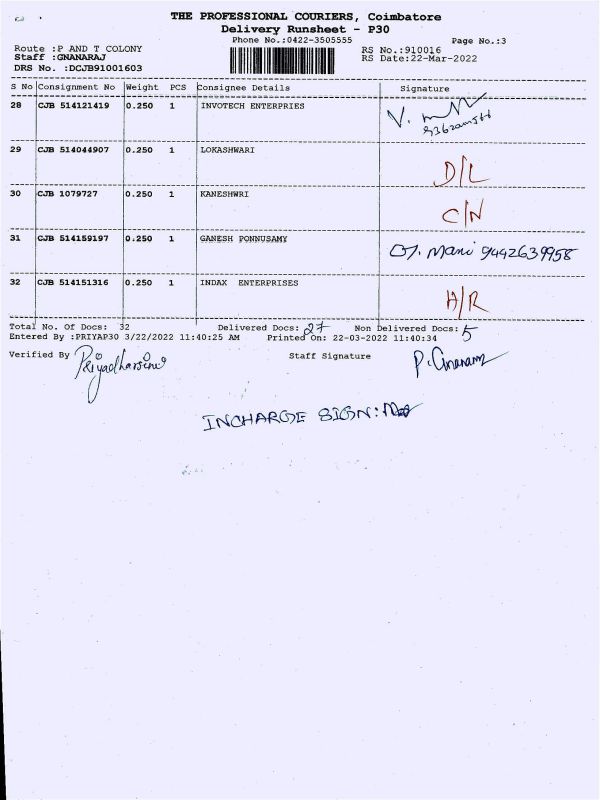 THE PROFESSIONAL COURIERS, Coimbatore
Delivery Runsheet - P30
Phone No.:0422-3505555
Page No.:3
Route :P AND T COLONY
RS No.:910016
Staff :GNANARAJ
RS Date:22-Mar-2022
DRS No. :DCJB91001603
S No Consignment No Weight PCS Consignee Details Signature
28 CJB 514121419 0.250 1 INVOTECH ENTERPRIES
29 CJB 514044907 0.250 1 LOKASHWARI D/L
30 CJB 1079727 0.250 1 KANESHWRI C/N
31 CJB 514159197 0.250 1 GANESH PONNUSAMY Mani 9442639958
32 CJB 514151316 0.250 1 INDAX ENTERPRISES H/R
Total No. Of Docs: 32 Delivered Docs: 27 Non Delivered Docs: 5
Entered By :PRIYAP30 3/22/2022 11:40:25 AM Printed On: 22-03-2022 11:40:34
Verified By Priyadharsini Staff Signature P. Gnanaraj
INCHARGE SIGN: